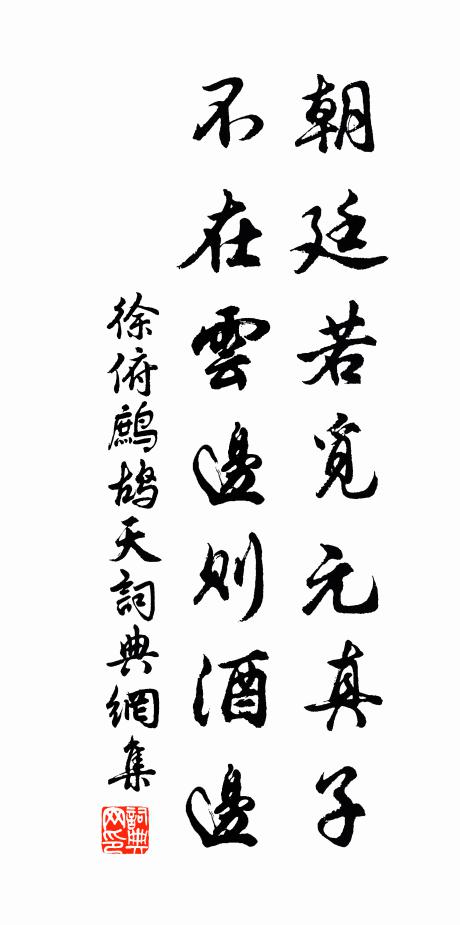 朝廷若覓元真子
不在雲邊則酒邊
徐俯鷓鴣天詞典網集
詞典網印